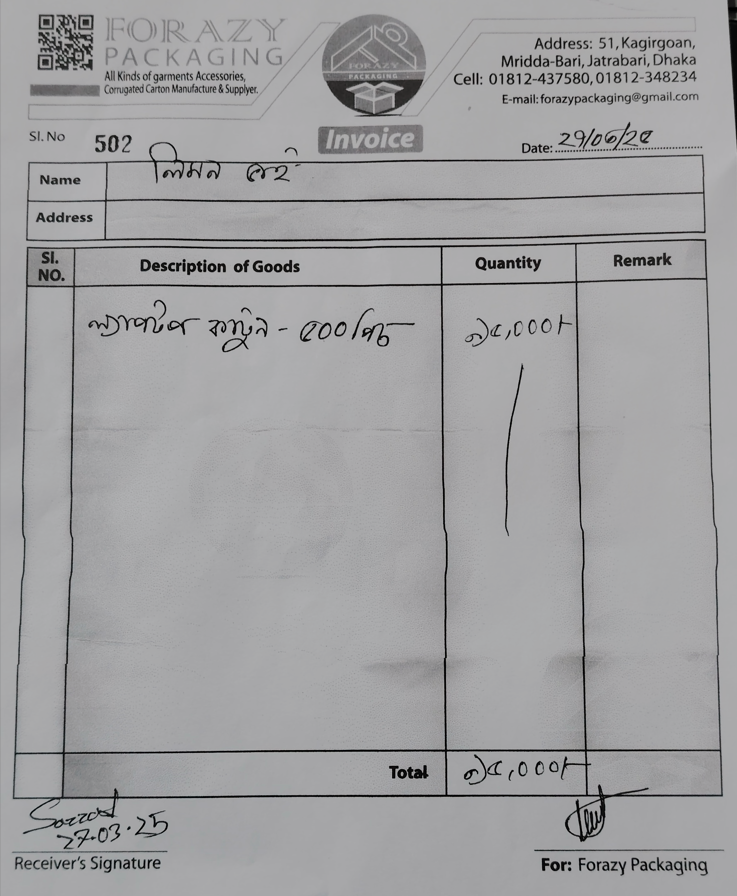 FORAZY
PACKAGING
All Kinds of garments Accessories,
Corrugated Carton Manufacture & Supplyer.
FORAZY
PACKAGING
Address: 51, Kagirgoan,
Mridda-Bari, Jatrabari, Dhaka
Cell: 01812-437580, 01812-348234
E-mail: forazypackaging@gmail.com
Sl. No 502
Invoice
Date: ২৭/০৩/২৫
Name লিমন ভাই
Address
Sl. NO. Description of Goods Quantity Remark
ল্যাপটপ কার্টুন - ৫০০ পিচ ৩৫,০০০/-
Total ৩৫,০০০/-
27-03-25
Receiver's Signature
For: Forazy Packaging